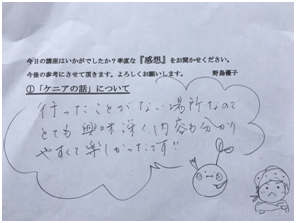 今日の講座はいかがでしたか?率直な『感想』をお聞かせください。
今後の参考にさせて頂きます。よろしくお願いします。 野島優子
①「ケニアの話」について
行ったことがない場所なので
とても興味深く、内容も分かり
やすくて楽しかったです!!